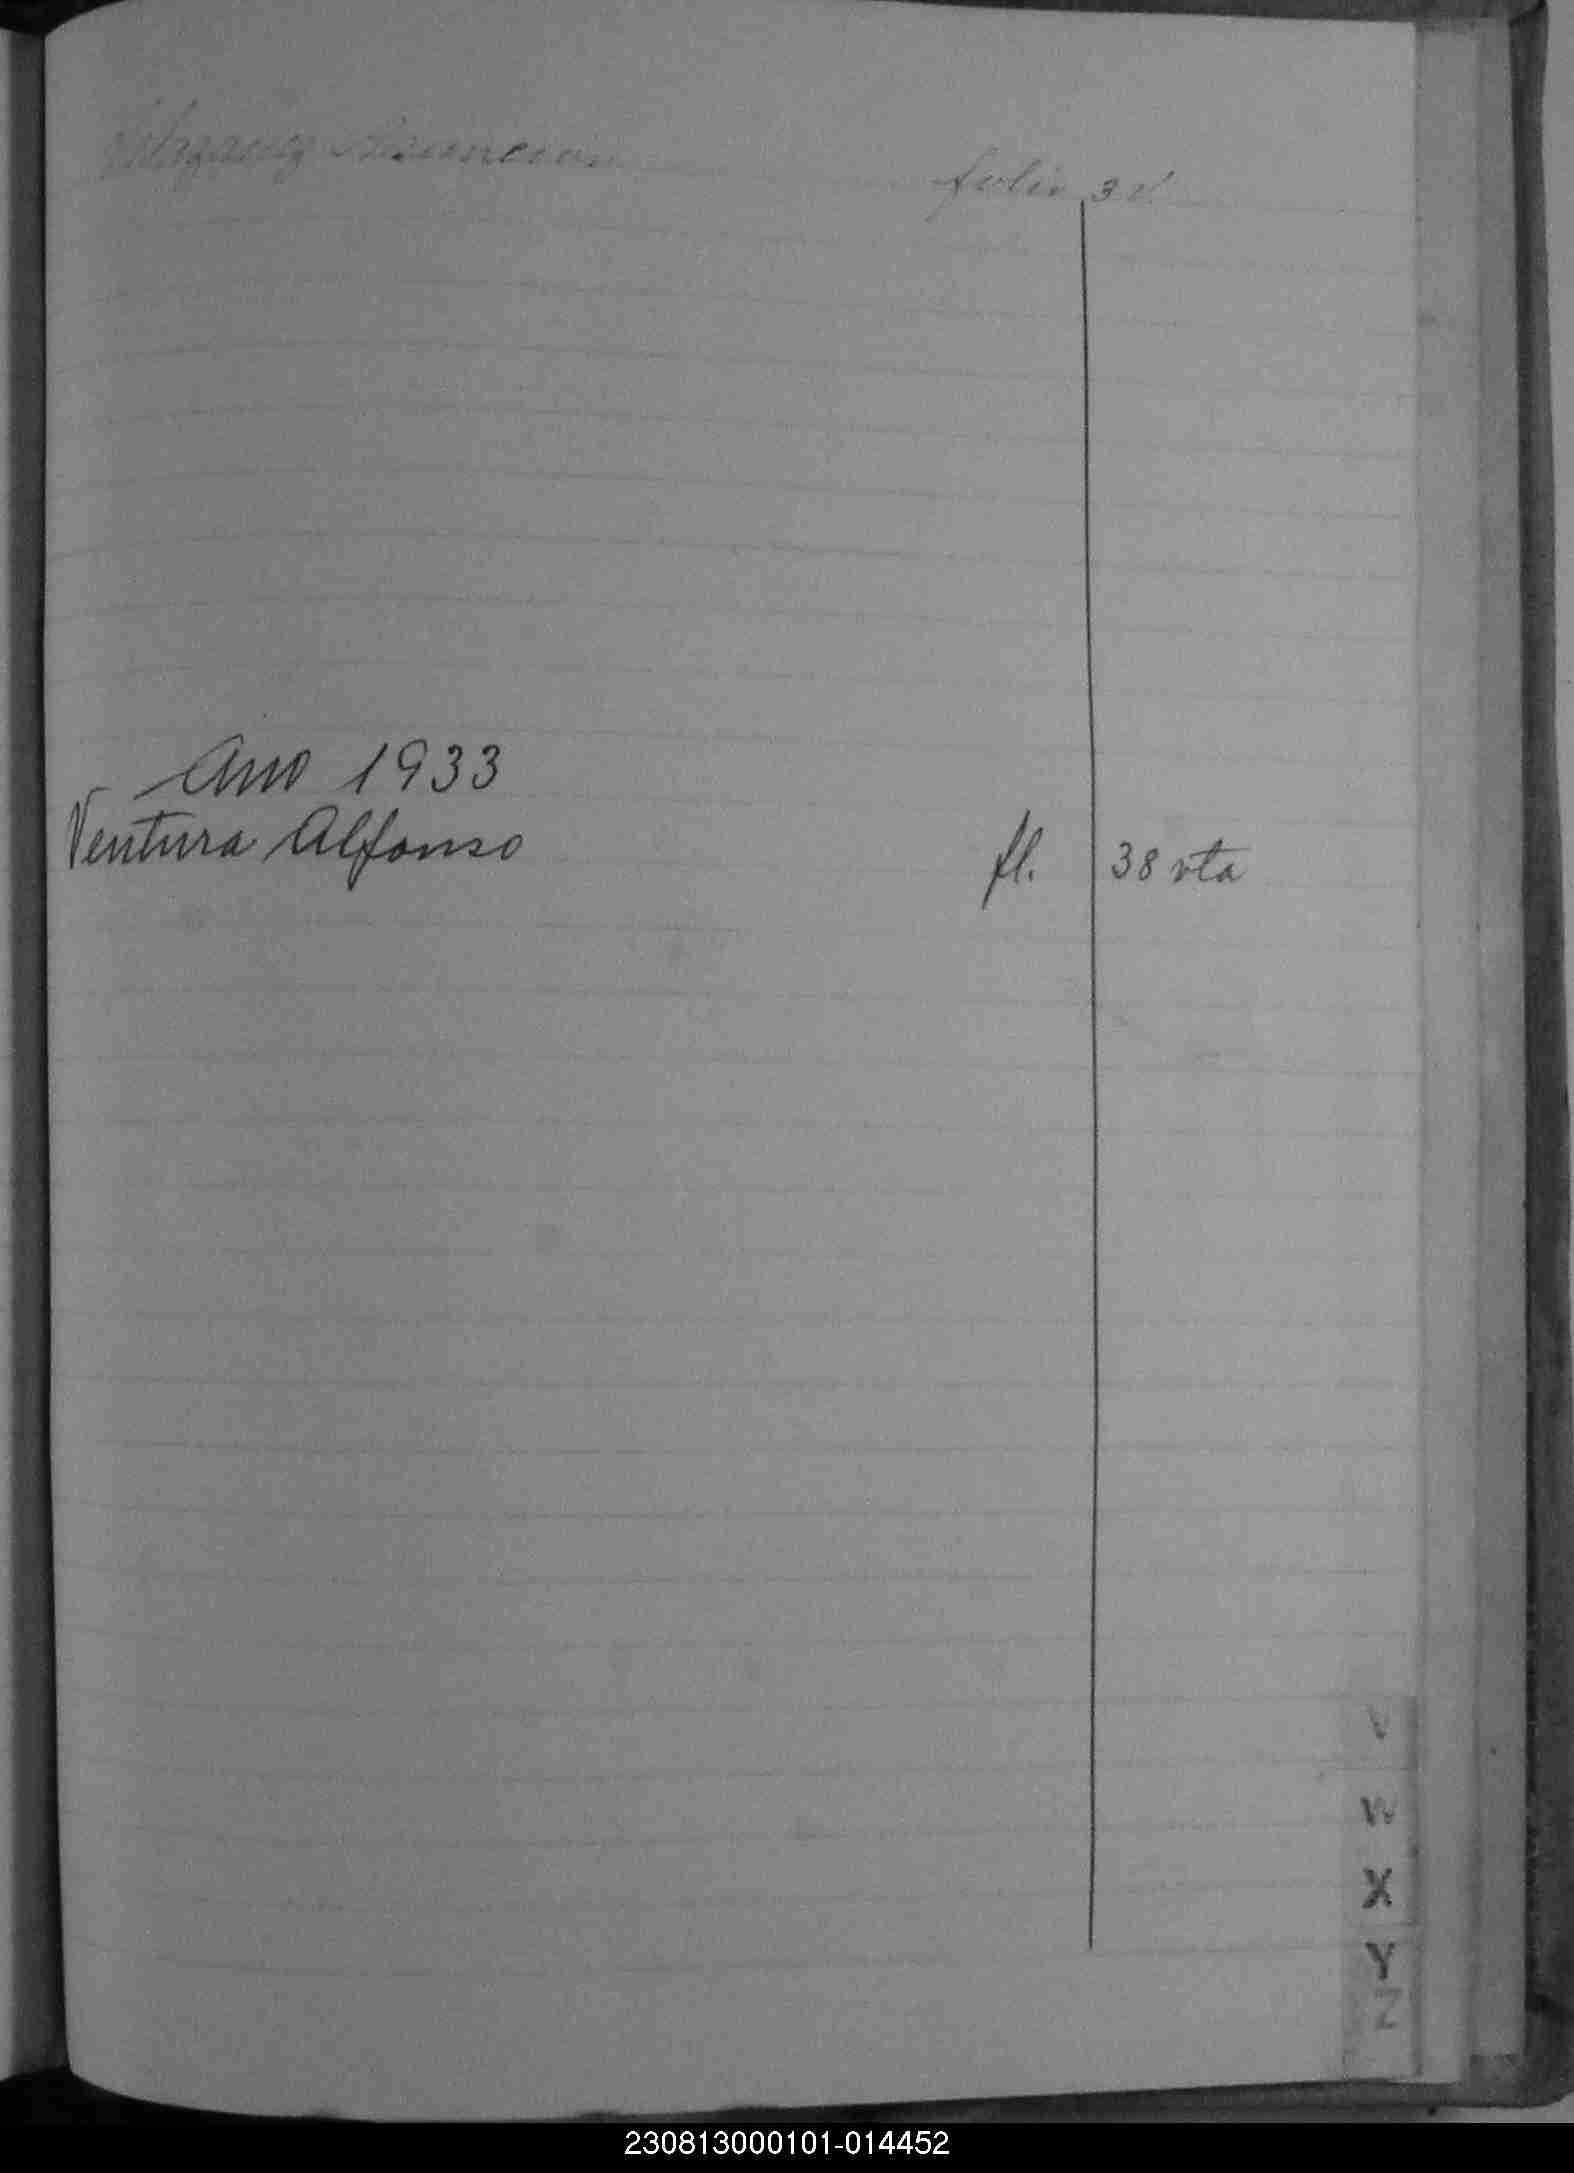 Asuncion folio 3 v.
Ano 1933
Ventura Alfonso fl. 38 vta
V
W
X
Y
Z
230813000101-014452